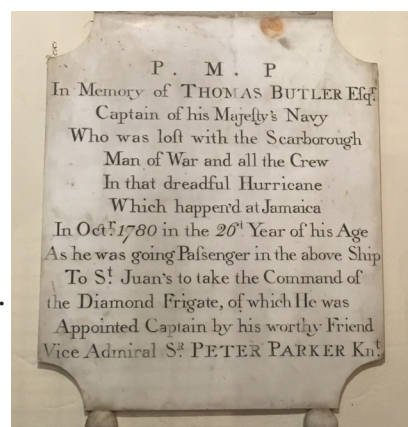 P. M. P
In Memory of THOMAS BUTLER Eſqr.
Captain of his Majeſty's Navy
Who was loſt with the Scarborough
Man of War and all the Crew
In that dreadful Hurricane
Which happen'd at Jamaica
In Octr. 1780 in the 26t Year of his Age
As he was going Paſsenger in the above Ship
To St. Juan's to take the Command of
the Diamond Frigate, of which He was
Appointed Captain by his worthy Friend
Vice Admiral SR. PETER PARKER Knt.